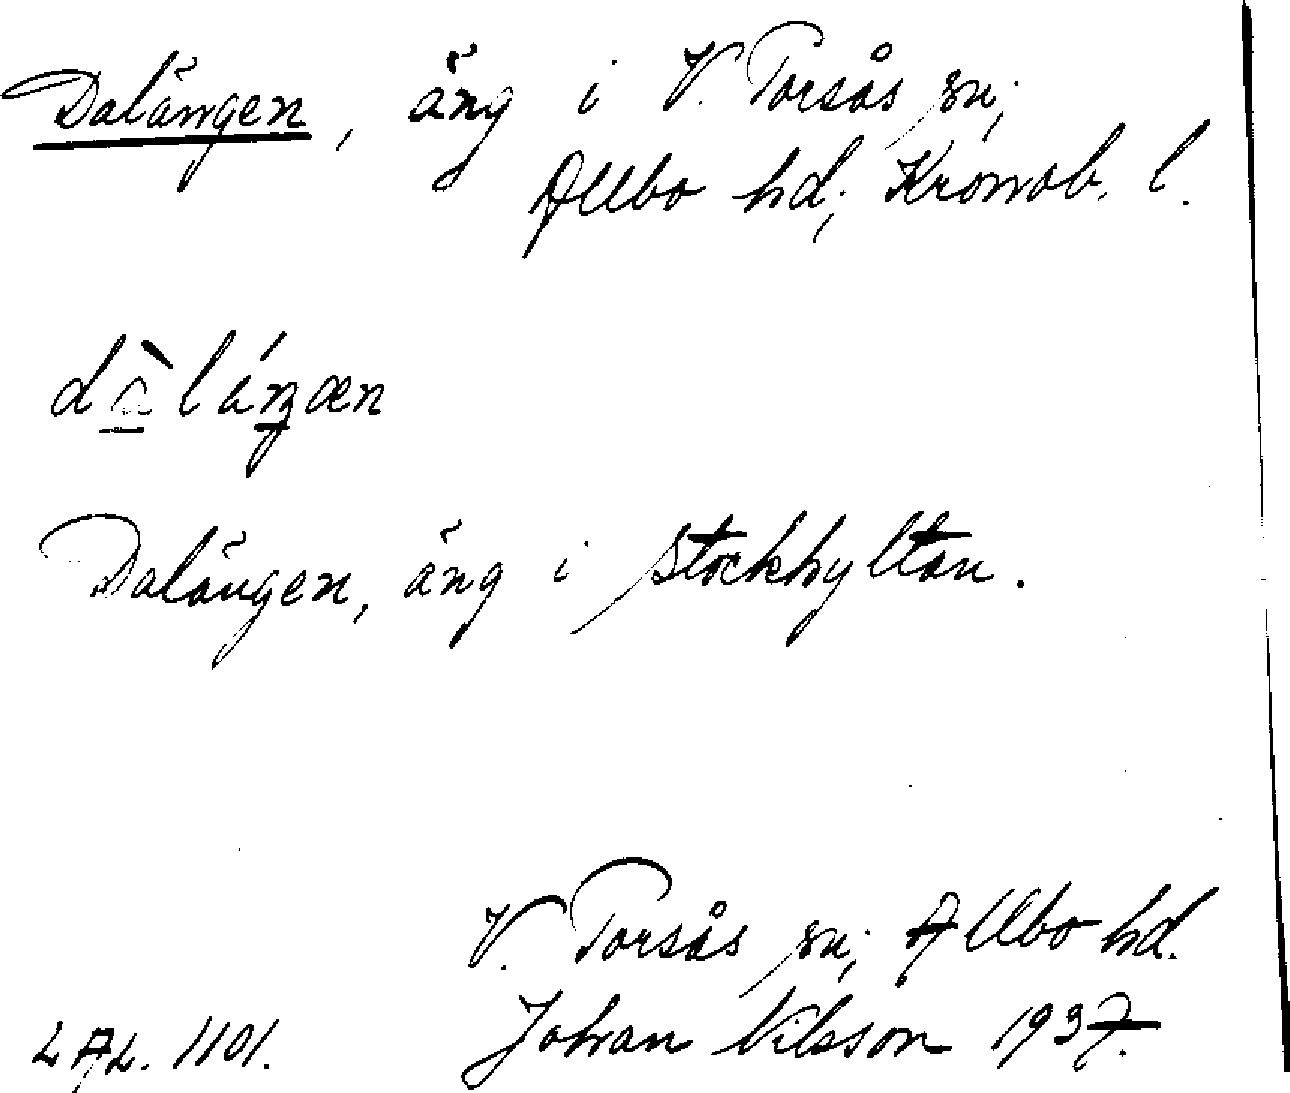 Dalängen, äng i V. Torsås sn;
Allbo hd; Kronob. l.
dàláŋæn
Dalängen, äng i Stockhyltan.
V. Torsås sn; Allbo hd.
LAL. 1101. Johan Nilsson 1937.